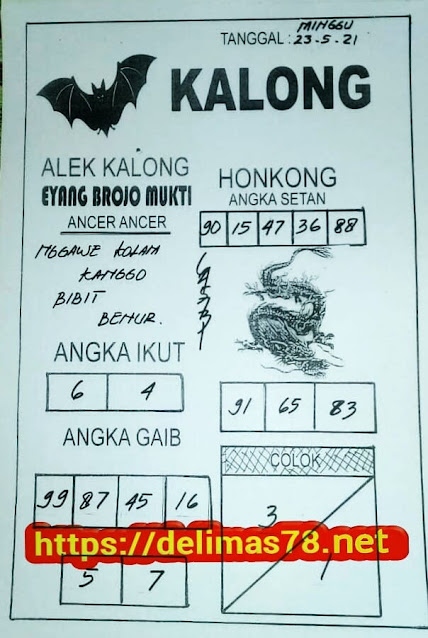 MINGGU
TANGGAL : 23-5-21
KALONG
ALEK KALONG
EYANG BROJO MUKTI
ANCER ANCER
NGGAWE KOLAM
KANGGO
BIBIT
BENUR.
HONKONG
ANGKA SETAN
90 15 47 36 88
ANGKA IKUT
6 4
91 65 83
ANGKA GAIB
99 87 45 16
COLOK
3
1
https://delimas78.net
5 7